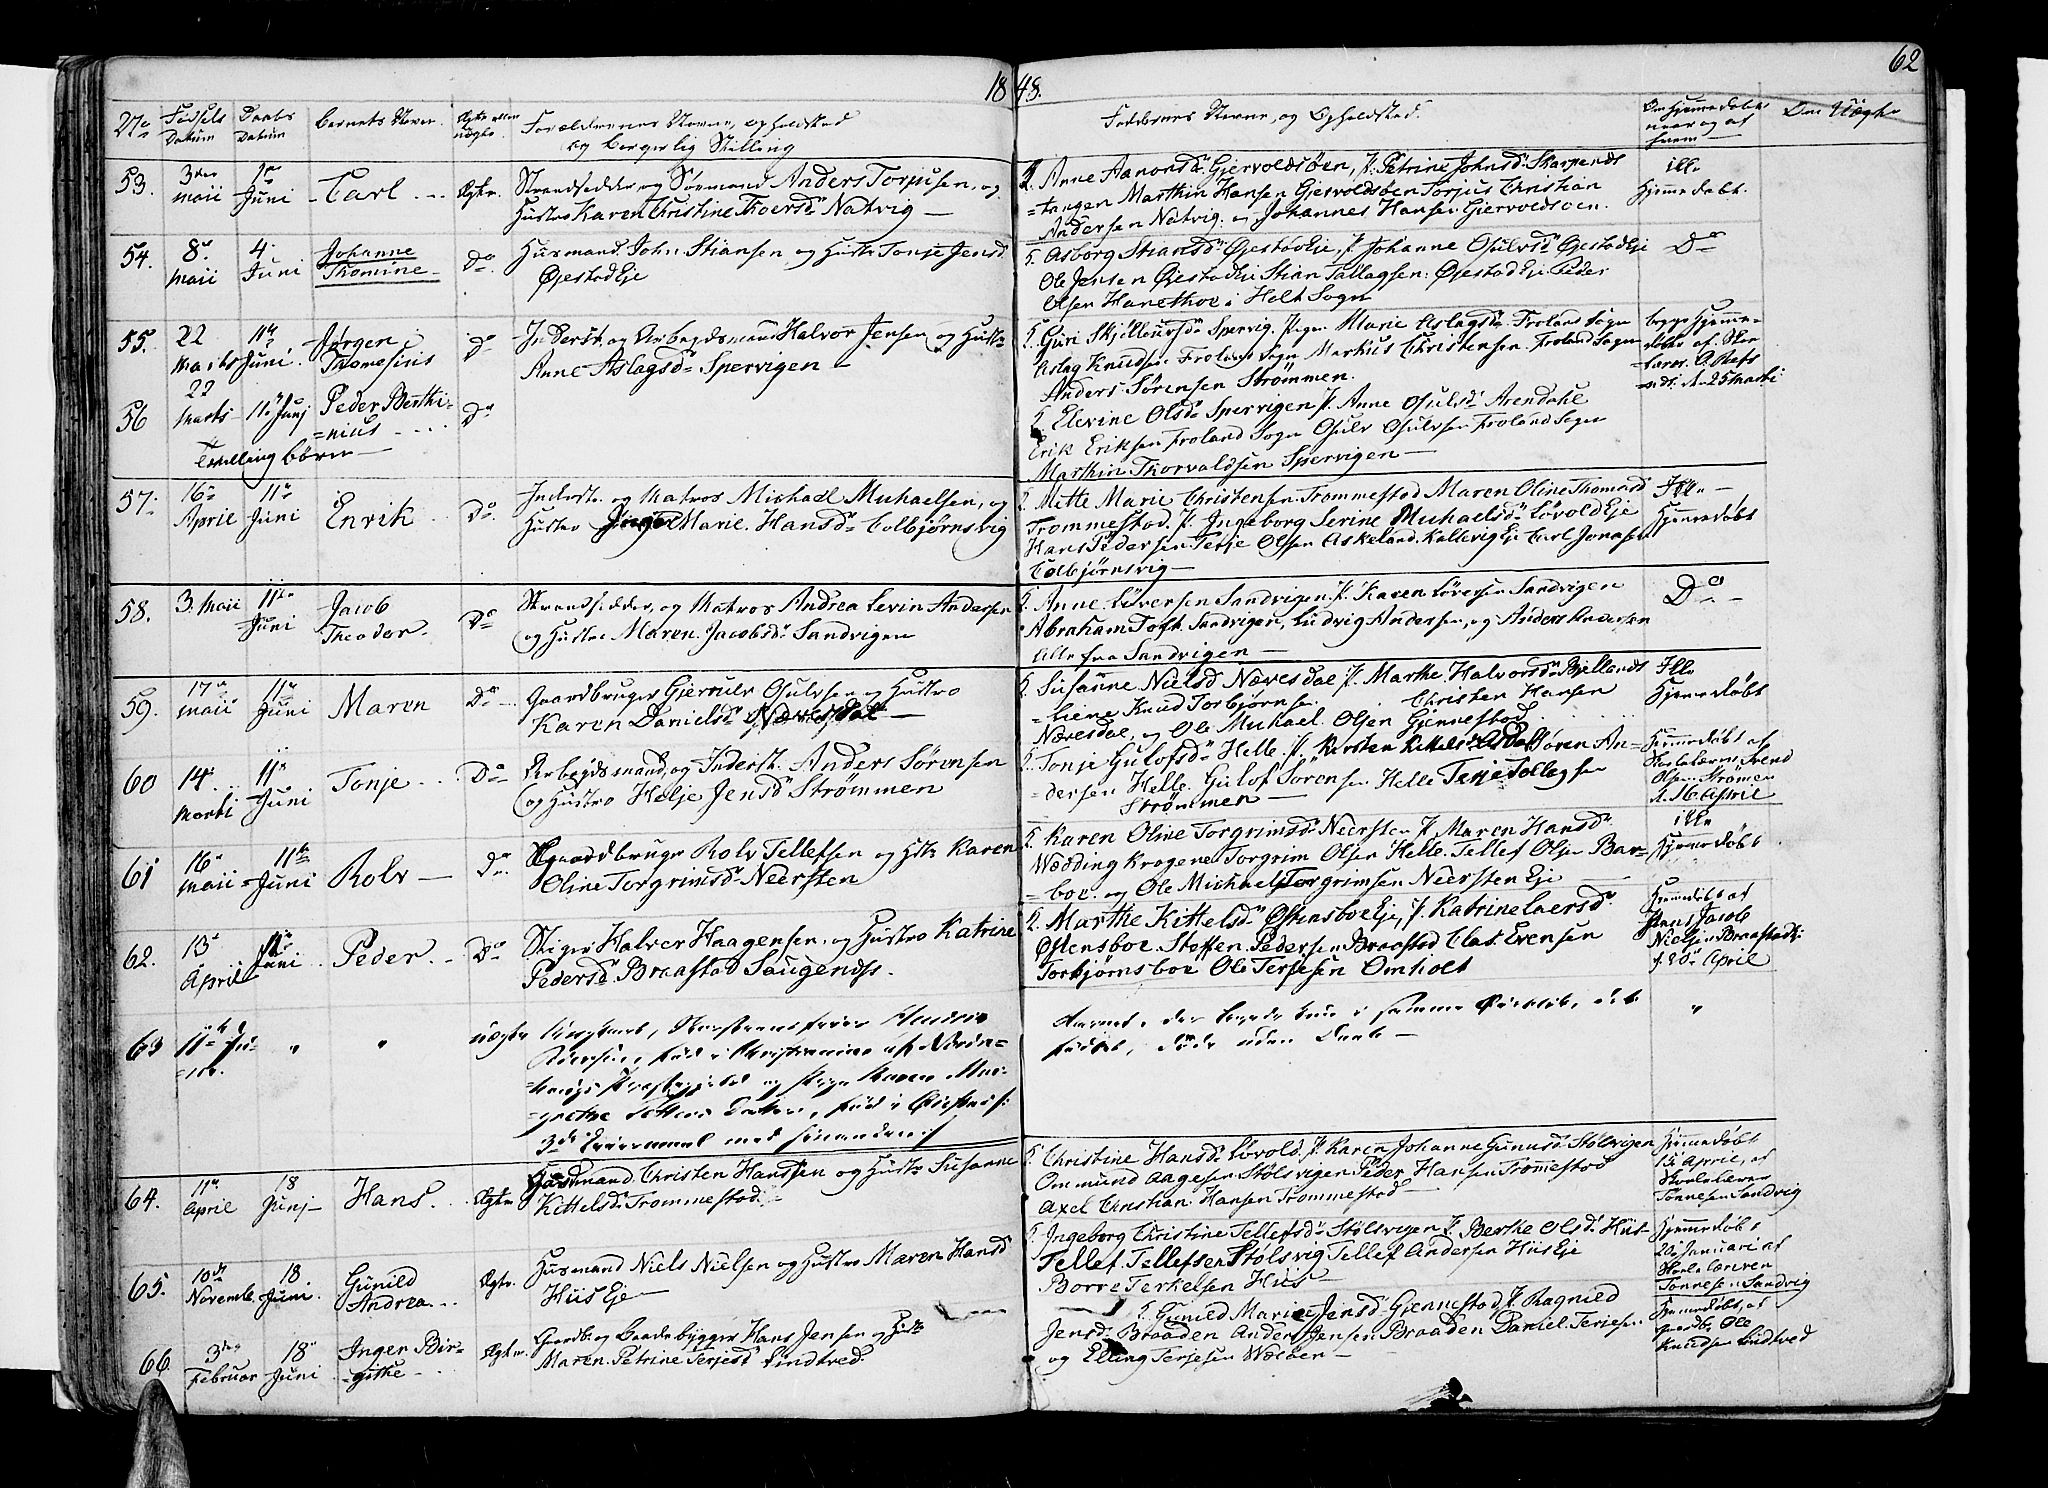 18 48.
62
No Fødsels Datum Daabs Datum Barnets Navn Ægte eller uægte Forældrenes Navne, Opholdsted og borgerlig Stilling
Faddernes Navne, og Opholdsted. Om hjemmedøbt naar og af hvem Om Uægte
53. 3die Maii 1ste Juni Carl Ægte. Strandsidder og Sømand Anders Torjusen, og
Hustro Karen Christine Thoersdr Natvig
Anne Aanonsdr Gjervoldsøen, P. Petrine Johnsdr Skarpends-
=tangen Marthin Hansen Gjervoldsøen Torjus Christian
Andersen Natvig. og Johannes Hansen Gjervoldsøen.
ikke
hjemmedøbt.
54. 8de Maii 4. Juni Johanne Thomine Do Husmand John Stiansen og Hustr Tonje Jensdr
Øjestad Eje
G. Asborg Stiansdr Øjestad Eje, P. Johanne Osulvsdr Øjestad Eje
Ole Jensen Øjestad Eje Stian Tallagsen Øjestad Eje Peder
Olsen Hanethoe i Holt Sogn
Do
55. 22 Marts 11te Juni Jørgen Thomesius Do Inderst og Arbeydsmand Halvor Jensen og Hustr
Anne Aslagsdr Spervigen
G. Guri Skjelloulvsdr Spervig. Pige Marie Aslagsdr Froland Sogn
Aslag Knudsen Froland Sogn Markus Christensen Froland Sogn
Anders Sørensen Strømmen.
begge hjemme-
døbte af Skol-
lærer O. Refs
nds. d. 25 Marti
56 22 Marts 11te Junj Peder Berthi-
=nius Do
Tvilling børn
G. Elevine Olsdr Spervigen P. Anne Osulsdr Arendahl
Erik Eriksen Froland Sogn Osulv Osulvsen Froland Sogn
Marthin Thorvaldsen Spervigen
57. 16de April 11te Juni Enrik Do Inderst og Matros Michael Michaelsen, og
Hustro Inger Marie Hansdr Colbjørnsvig
G. Mette Marie Christensen Trommestad Maren Oline Thomasdr
Trommestad. P. Ingeborg Serine Michaelsdr Løvold Eje
Hans Pedersen Terje Olsen Askeland Kallevig Eje Carl Jonasen
Colbjørnsvig
Ikke
hjemmedøbt
58. 3. Maii 11te Juni Jacob Theodor Do Strandsidder, og Matros Andrea Levin Andersen
og Hustro Maren Jacobsdr Sandvigen
G. Anne Løversen Sandvigen P. Karen Løversen Sandvigen
Abraham Toft Sandvigen, Ludvig Andersen, og Anders Andersen
Alle fra Sandvigen
Do
59. 17de Maii 11te Juni Maren Do Gaardbruger Gjerulv Osulvsen og Hustro
Karen Danielsdr Næresdal
G. Susanne Nielsd Næresdal P. Marthe Halvorsdr Bjellands
=heiene Knud Torbjørnsen Christen Hansen
Næresdal, og Ole Michael Olsen Gjennestad
Ikke
hjemmedøbt
60 14. Marti 11te Juni Tonje Do Arbeydsmand, og Inderst. Anders Sørensen
og Hustro Helje Jensd Strømmen
G. Tonje Gulofsdr Helle P. Kirsten Kittelsdr Asdal Søren An-
=dersen Helle. Gulof Sørensen Helle Terje Tellagsen
Strømmen
Hjemmedøbt af
Skolelærer Svend
Olsen Strømen
d. 16 April
61 16de Maii 11te Juni Rolv Do Gaardbruger Rolv Tellefsen og Hstr Karen
Oline Torgrimsdr Neersten
G. Karen Oline Torgrimsdr Neersten P. Maren Hansdr
Wedding Krogene Torgrim Olsen Helle. Tellef Olsen Bar-
=boe. og Ole Michael Torgrimsen Neersten Eje
ikke
hjemmedøbt
62. 13de April 11te Juni Peder Do Stiger Halvor Haagensen, og Hustro Katrine
Pedersdr Braastad Saugends.
G. Marthe Kittelsdr Østensboe Eje, P. Katrine Laersdr
Østensboe. Stoffen Pedersen Braastad Clas Evensen
Torbjørnsboe Ole Terjesen Omholt
Hjemmedøbt af
Hans Jacob
Nielsen Braastads
d. 20de April
63 11te Ju-
=ni. " " uægte Ungkarl,
3die Leiermaal med hinanden
Barnet, der begge Kun i samme Øieblik, det
fødtes, døde uden Daab
"
64. 11te April 18 Junj Hans. Ægte Husmand Christen Hansen og Hustr Susanne
Kittelsdr Trommestad.
G. Christine Hansdr Løvold. P. Karen Johanne Gunnisdr Stølsvigen
Ommund Aagesen Stølsvigen Peder Hansen Tromestad
Axel Christian Hansen Trommestad
Hjemmedøbt
15 April, af
Skolelærer
Tønnesen Sandvig
65. 10de Novemb. 18 Juni. Gunild Andrea Ægte. Husmand Niels Nielsen og Hustro Maren Hansd
Hiis Eje
G. Ingeborg Christine Tellefsdr Stølsvigen P. Berthe Olsdr Hiis-
Tellef Tellefsen Stølsvig Tellef Andersen Hiis Eje
Borre Terkelsen Hiis
Hjemmedøbt
20 Januari af
Skolelæreren
Tønnesen Sandvig
66 3die Februar 18de Juni Inger Bir-
=githe Ægte. Gaardb og Baadebygger Hans Jensen og Hustr
Maren Petrine Terjesd Lindtved.
G. Gunild Marie Jensdr Gjennestad, P. Ragnild
Jensdr Braaden Anders Jensen Braaden Daniel Terjesen
og Elling Terjesen Wæløen
Hjemmedøbt, af
gaardbr Ole
Knudsen Lindtved